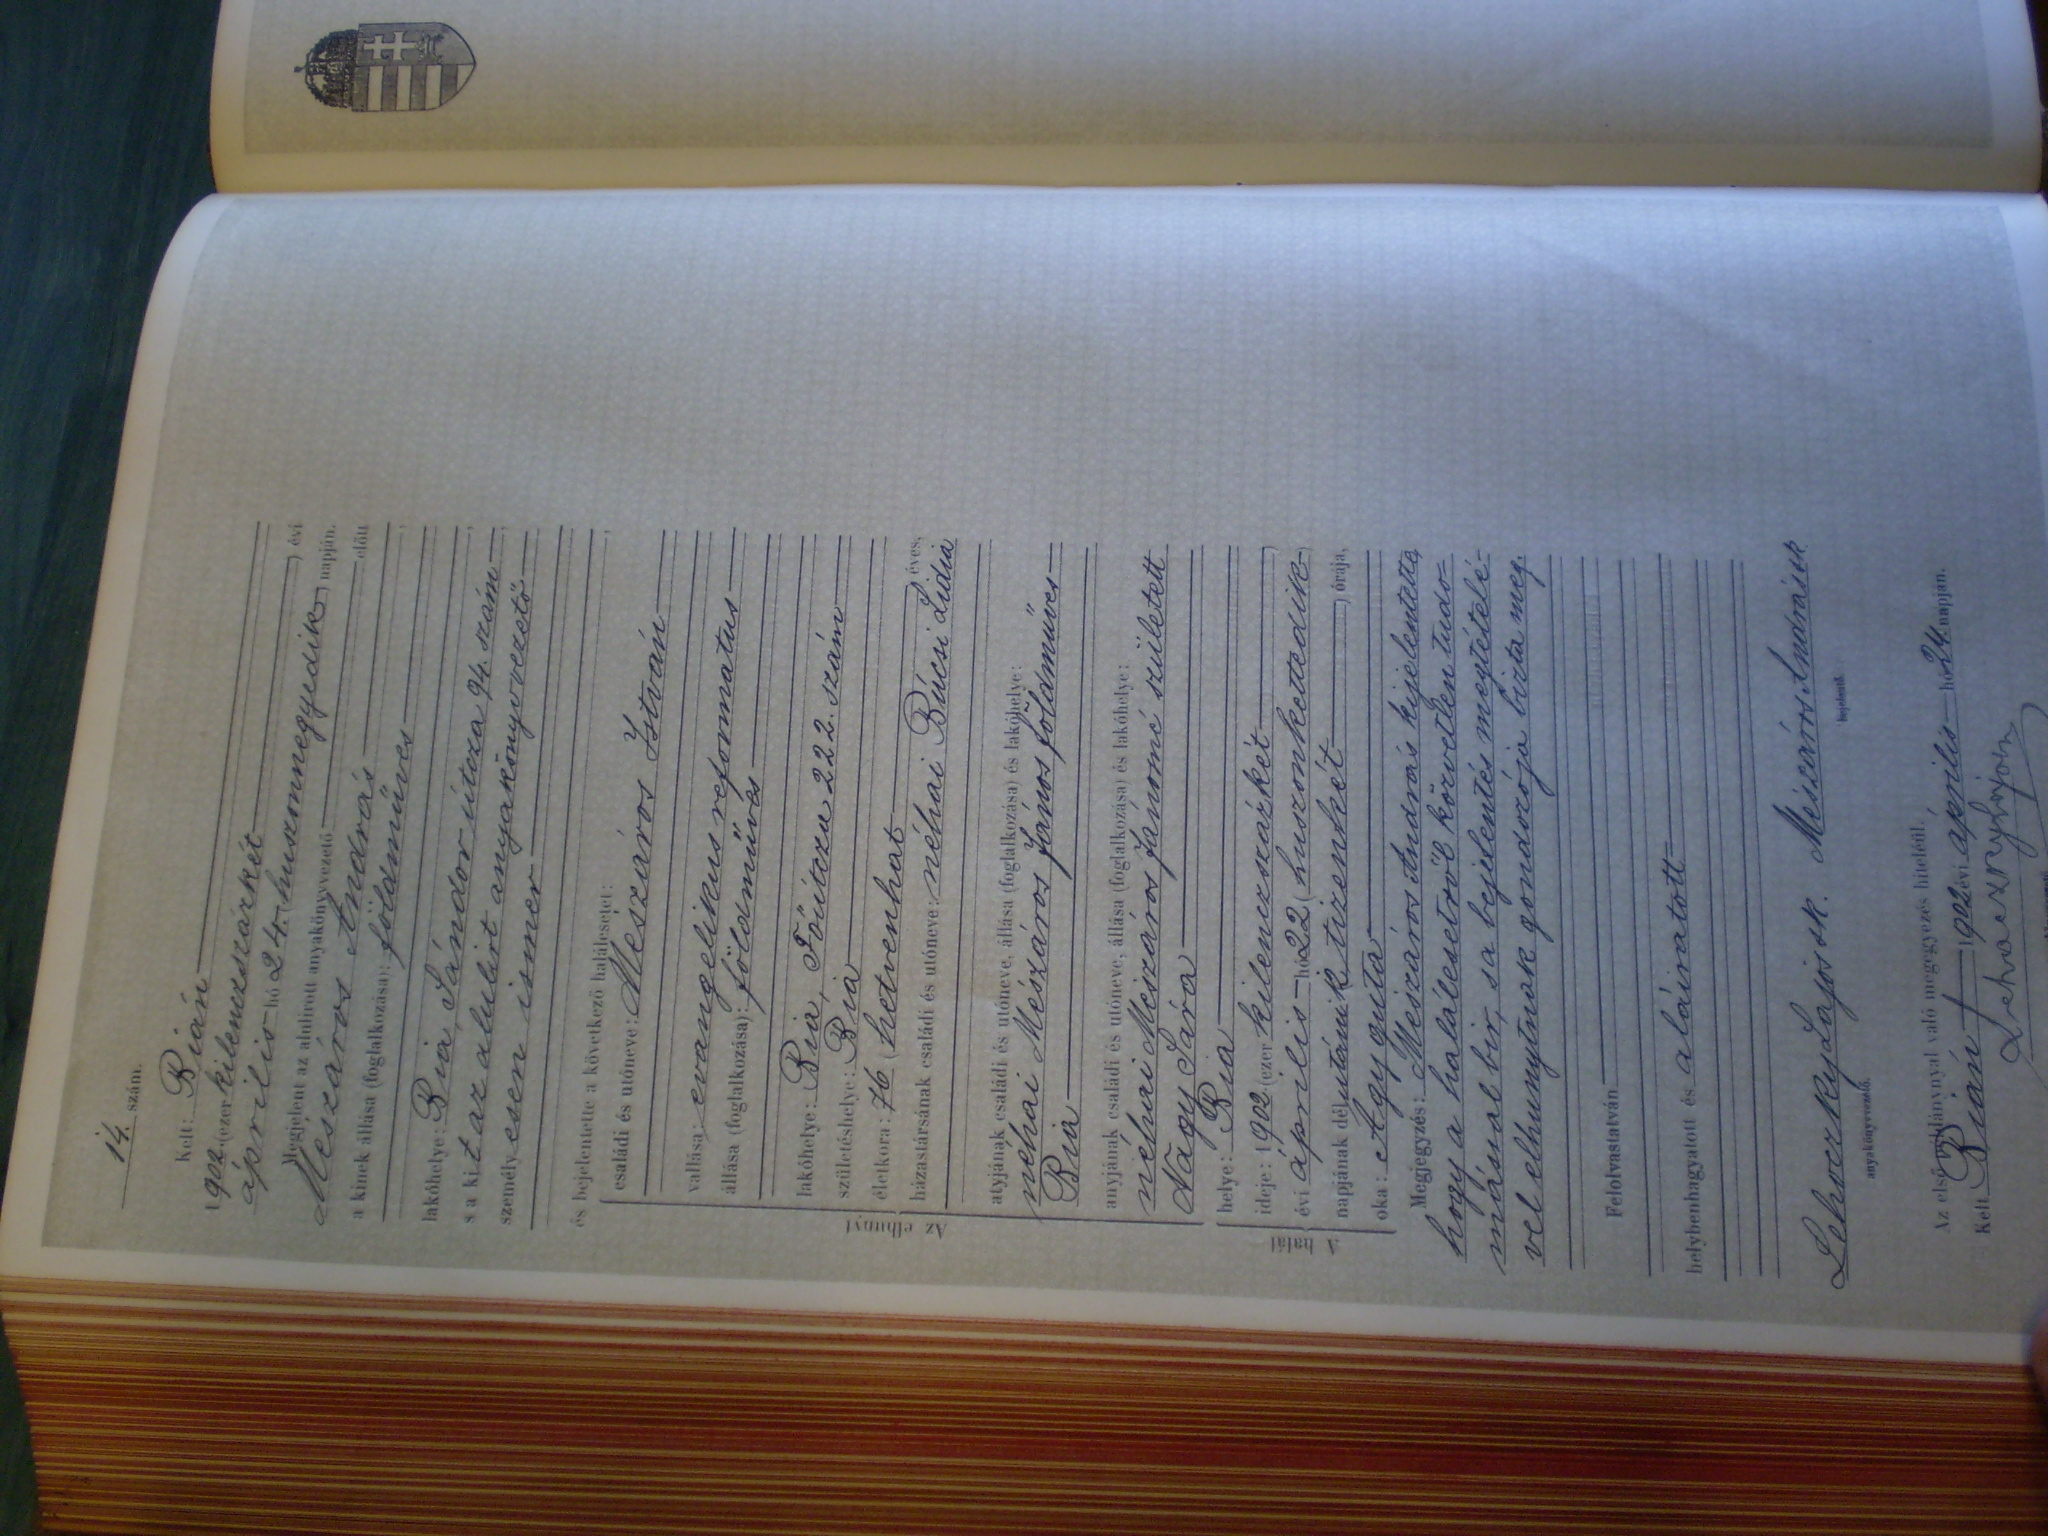 14. szám.
Kelt: Bián
1902 (ezer kilenczszázkét ) évi
április hó 24. (huszonnegyedik) napján.
Megjelent az alulirott anyakönyvvezető előtt
Mészáros András
a kinek állása (foglalkozása): földműves,
lakóhelye: Bia, Sándor útcza 94. szám,
s a kit az alulirt anyakönyvvezető
személyesen ismer,
és bejelentette a következő halálesetet:
Az elhunyt
családi és utóneve: Mészáros István
vallása: evangelikus reformatus
állása (foglalkozása): földműves
lakóhelye: Bia, Főútcza 222. szám
születéshelye: Bia
életkora: 76 (hetvenhat ) éves,
házastársának családi és utóneve: néhai Búcsi Lidia
atyjának családi és utóneve, állása (foglalkozása) és lakóhelye:
néhai Mészáros János földműves
Bia
anyjának családi és utóneve, állása (foglalkozása) és lakóhelye:
néhai Mészáros Jánosné született
Nagy Sára
A halál
helye: Bia
ideje: 1902 (ezer kilenczszázkét )
évi április hó 22 (huszonkettedik )
napjának délutánik tizenkét ) órája,
oka: Agyguta
Megjegyzés: Mészáros András kijelentette,
hogy a halálesetről közvetlen tudo-
mással bir, s a bejelentés megtételé-
vel elhunytnak gondozója bizta meg.
Felolvastatván
helybenhagyatott és aláiratott
Lehoczky Lajos sk. Mészáros András sk
anyakönyvvezető. bejelentő.
Az első példánnyal való megegyezés hiteléűl.
Kelt Bián 1902 évi április hó 24. napján.